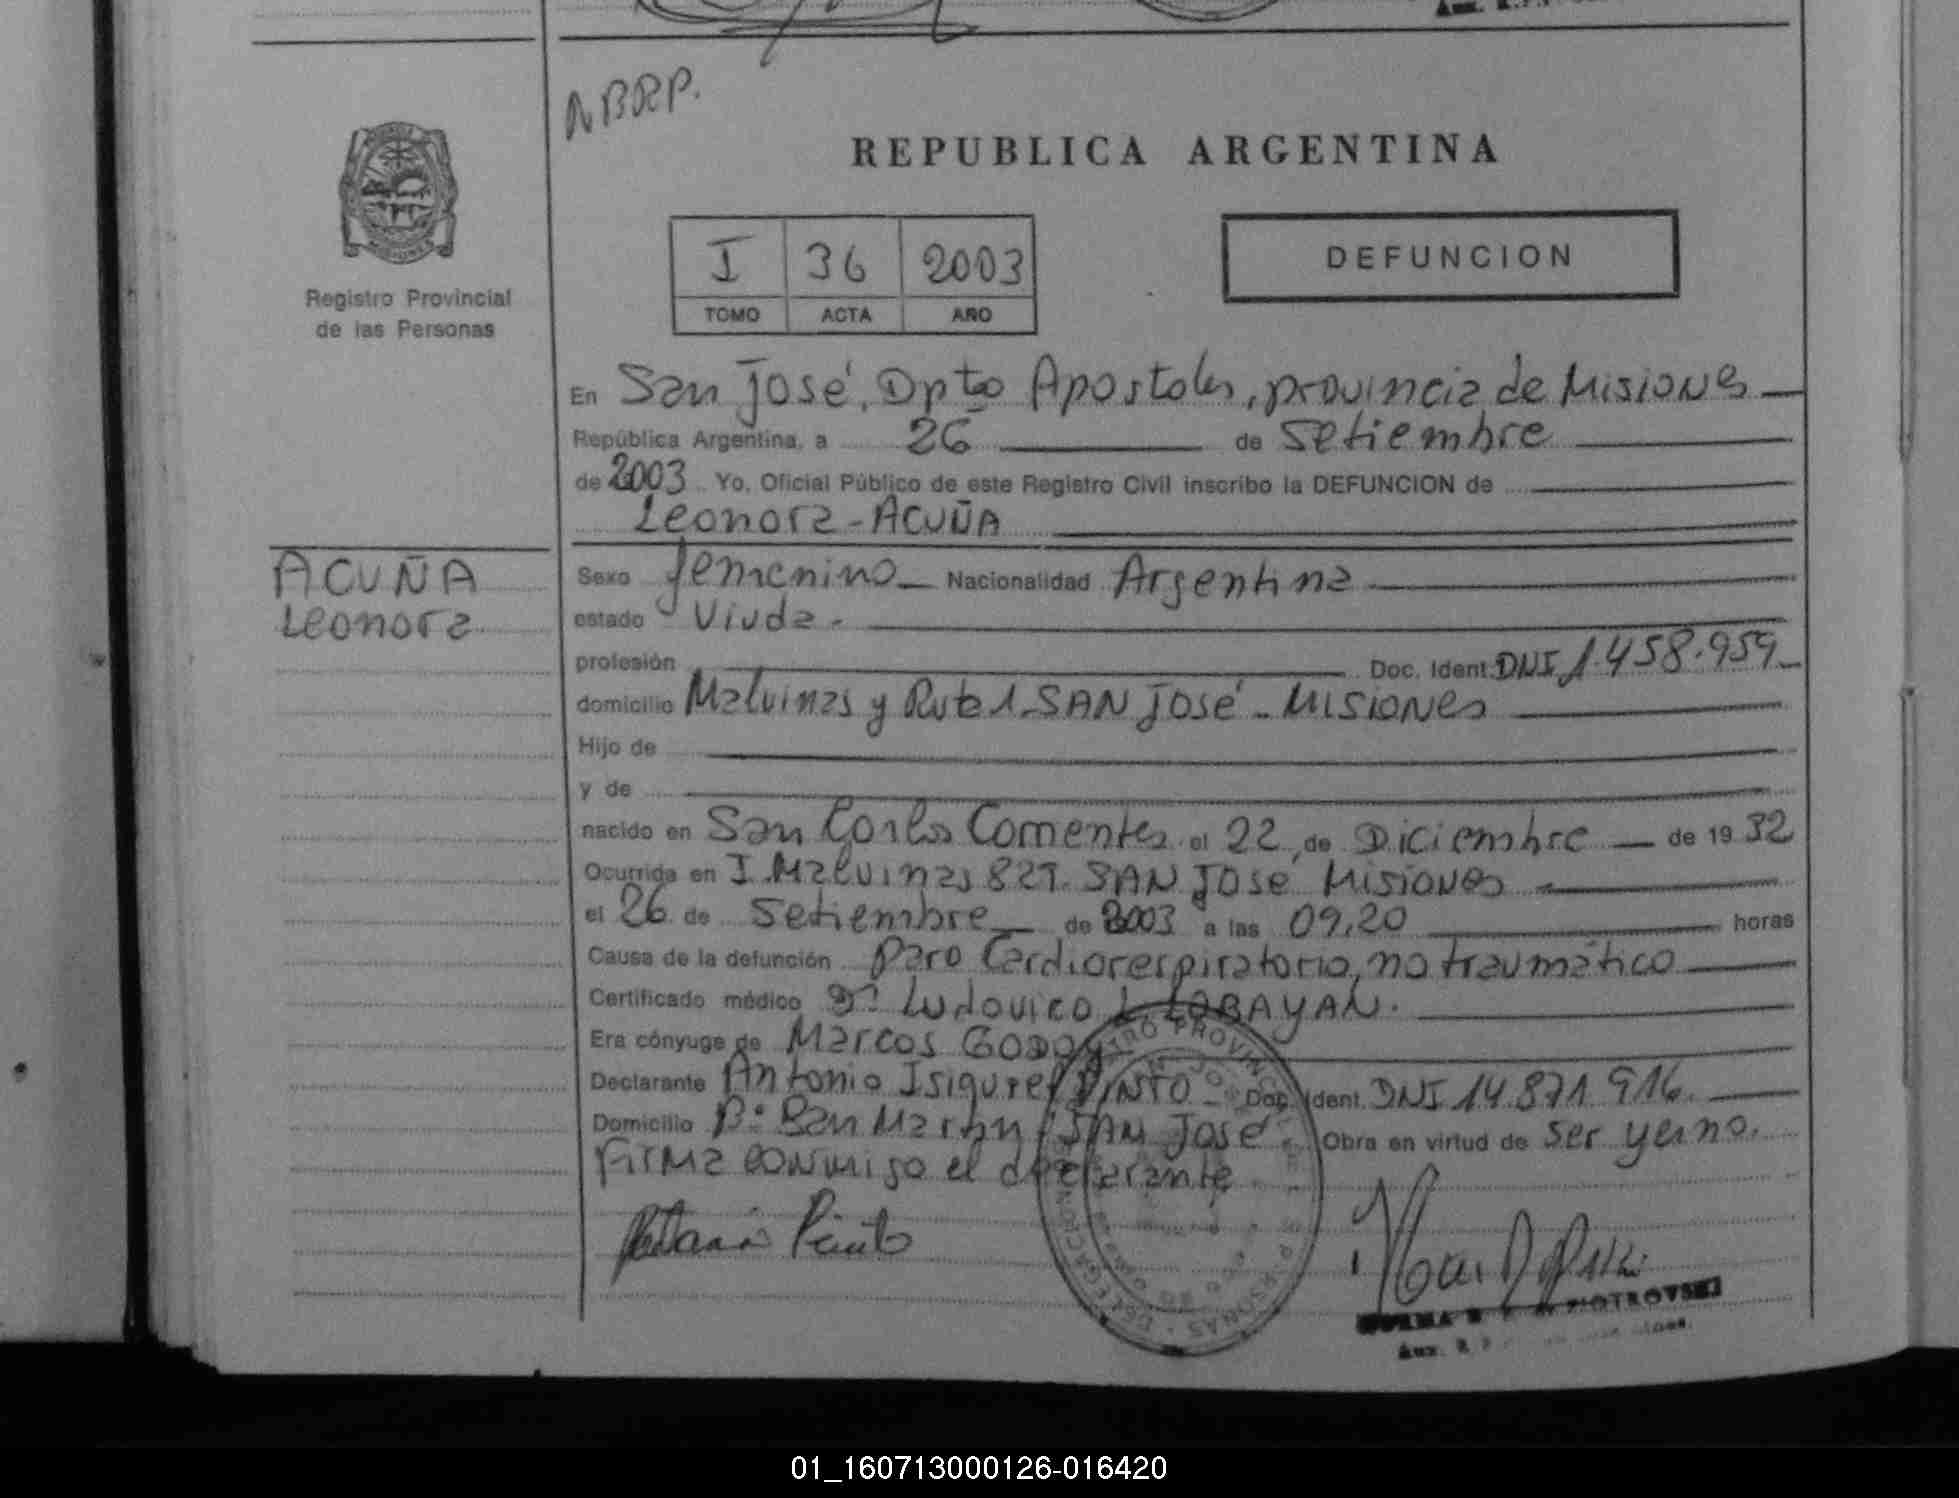 NBRP.
REPUBLICA ARGENTINA
I 36 2003
TOMO ACTA AÑO
DEFUNCION
Registro Provincial
de las Personas
En San José, Dpto Apostoles, provincia de Misiones
República Argentina, a 26 de Setiembre
de 2003 Yo, Oficial Público de este Registro Civil inscribo la DEFUNCION de
Leonora - ACUÑA
ACUÑA
Leonora
Sexo femenino Nacionalidad Argentina
estado Viuda.
profesión Doc. Ident. DNI 1.458.959
domicilio Malvinas y Ruta 1. SAN José - Misiones
Hijo de
y de
nacido en San Carlos Corrientes el 22 de Diciembre de 1932
Ocurrida en I. Malvinas 827. SAN José Misiones
el 26 de Setiembre de 2003 a las 09,20 horas
Causa de la defunción Paro Cardiorespiratorio, no traumático
Certificado médico Dr. Ludovico L. LABAYAN.
Era cónyuge de Marcos GODOY
Declarante Antonio PINTO Doc. Ident. DNI 14.871.916.
Domicilio B: San Martin SAN José. Obra en virtud de ser yerno.
Firma conmigo el declarante
Antonio Pinto
PIOTROVSKI
Aux.
01_160713000126-016420